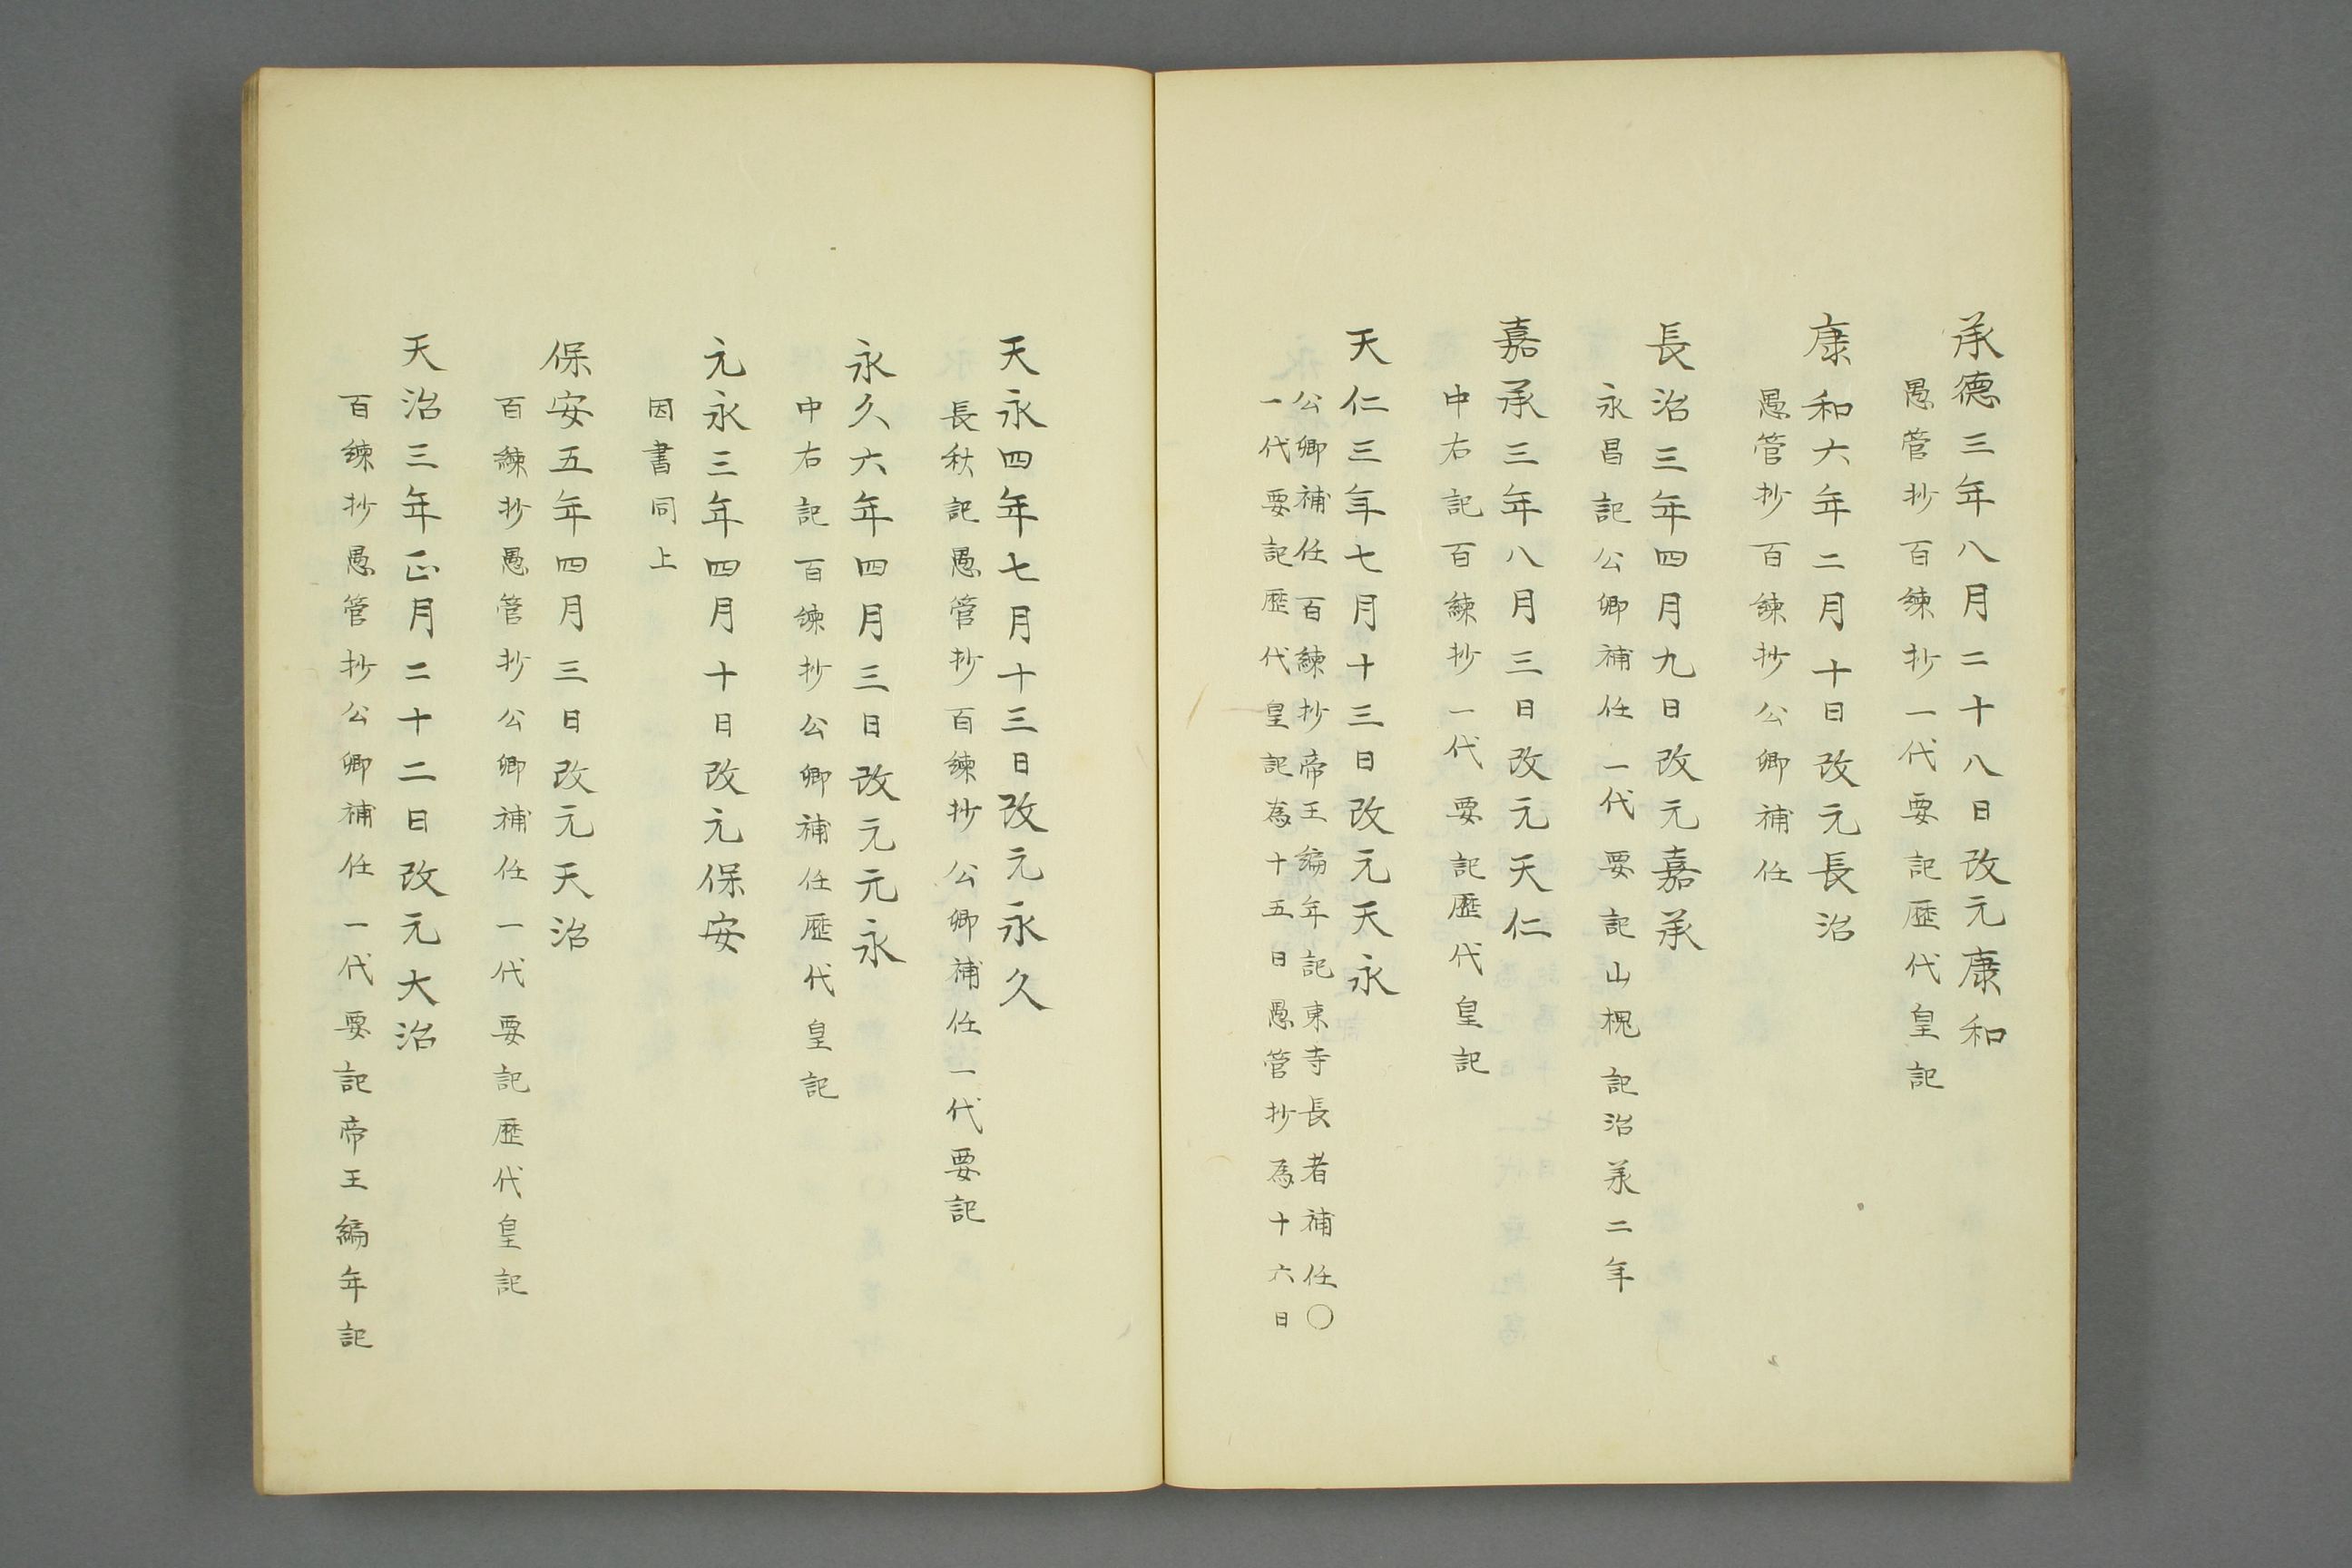 承德三年八月二十八日改元康和
愚管抄百練抄一代要記歷代皇記
康和六年二月十日改元長治
愚管抄百練抄公卿補任
長治三年四月九日改元嘉承
永昌記公卿補任一代要記山槐記治承二年
嘉承三年八月三日改元天仁
中右記百練抄一代要記歷代皇記
天仁三年七月十三日改元天永
公卿補任百練抄帝王編年記東寺長者補任〇
一代要記歷代皇記為十五日愚管抄為十六日
天永四年七月十三日改元永久
長秋記愚管抄百練抄公卿補任一代要記
永久六年四月三日改元元永
中右記百練抄公卿補任歷代皇記
元永三年四月十日改元保安
因書同上
保安五年四月三日改元天治
百練抄愚管抄公卿補任一代要記歷代皇記
天治三年正月二十二日改元大治
百練抄愚管抄公卿補任一代要記帝王編年記